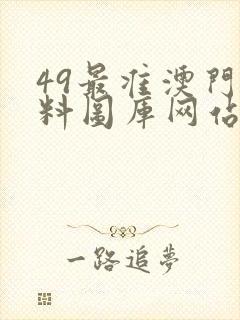 49最准澳門
料圖库网站
一路追夢